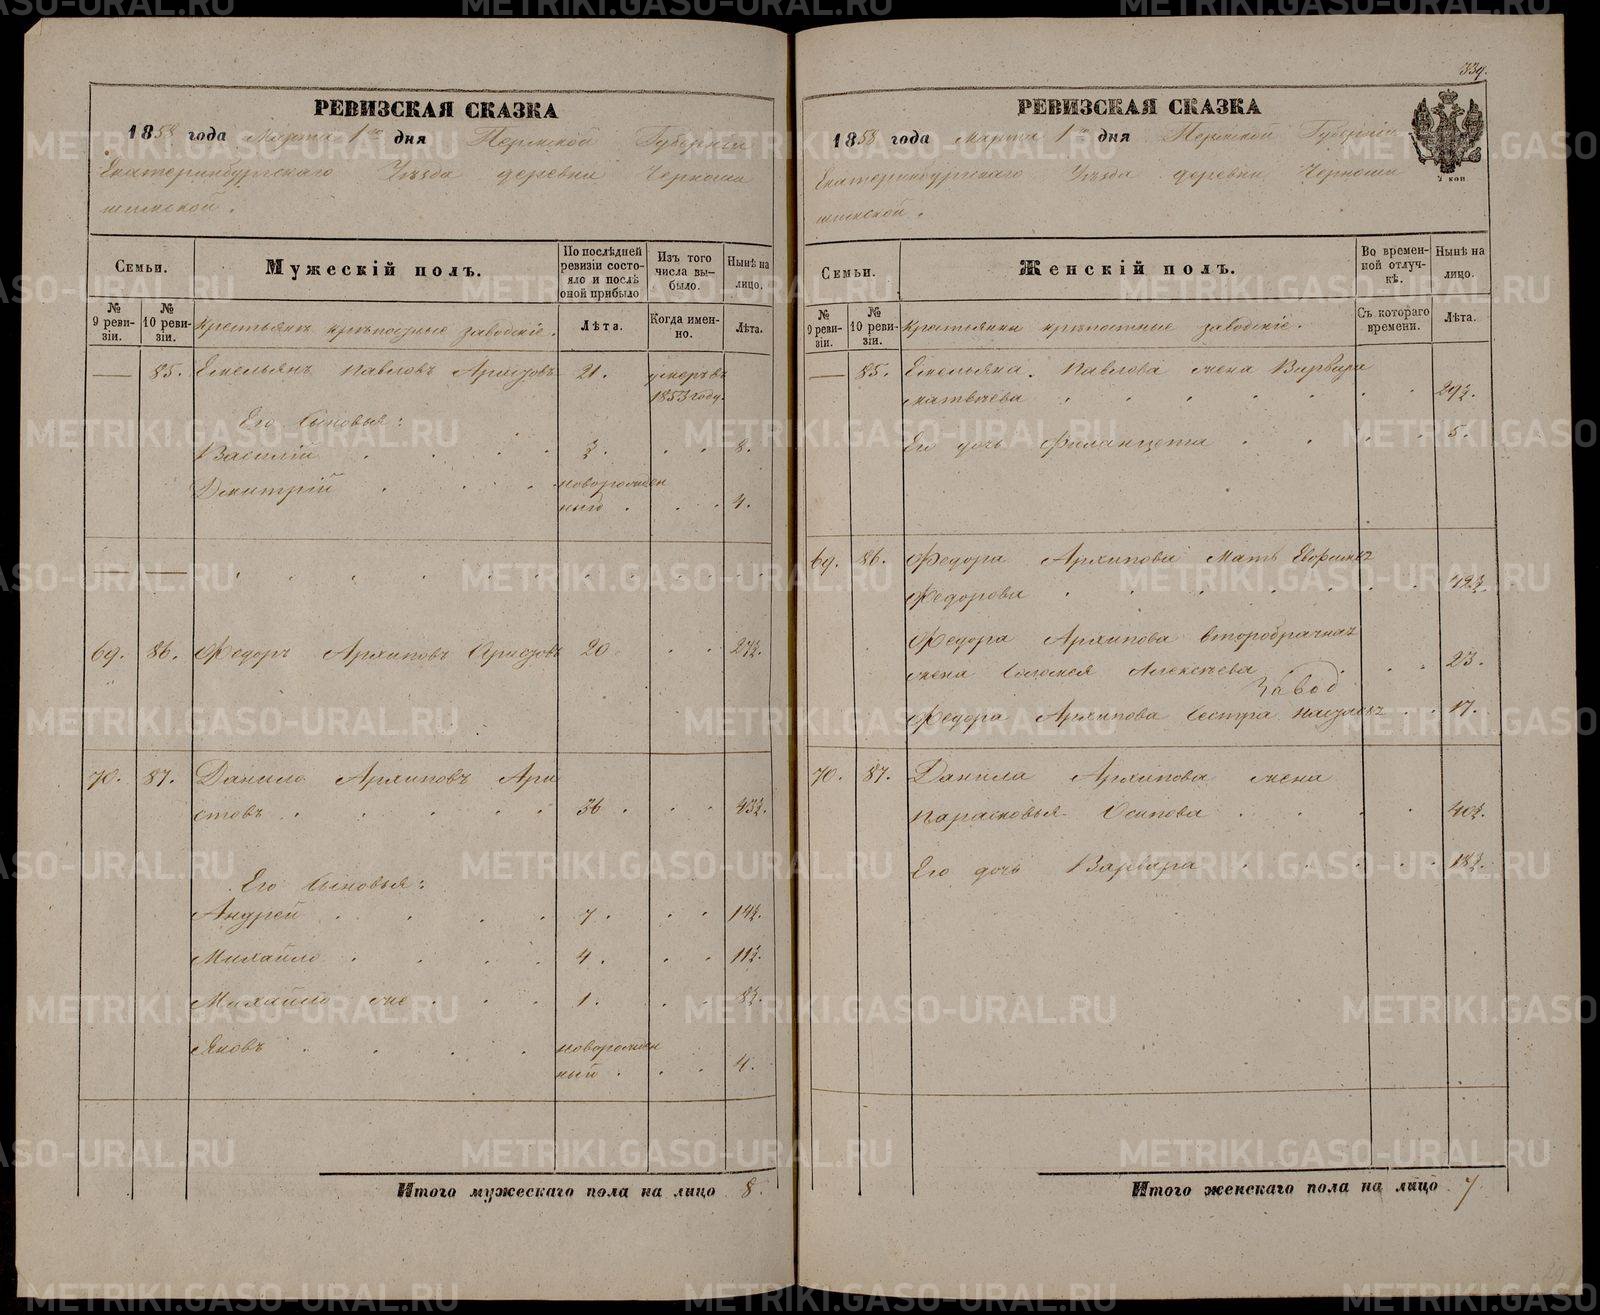 РЕВИЗСКАЯ СКАЗКА
1858 года Марта 1го дня Пермской Губерніи
Екатеринбургскаго Уѣзда деревни Черноши
шимской.
Семьи.
Мужескій полъ.
По послѣдней ревизіи состояло и послѣ оной прибыло
Изъ того числа выбыло.
Нынѣ на лицо.
№ 9 ревизіи.
№ 10 ревизіи.
Крестьянъ крѣпостные заводскіе.
Лѣта.
Когда именно.
Лѣта.
— 85. Емельянъ Павловъ Аристовъ 21. умеръ въ
1853 году.
Его Сыновья:
Василій ½. 8.
Дмитрій новорожден
ный 4.
— —
69. 86. Федоръ Архиповъ Аристовъ 20 27½.
70. 87. Данило Архиповъ Ари
стовъ 36 43½.
Его Сыновья:
Андрей 7. 14½.
Михайло 4. 11½.
Михайло же 1. 8½.
Яковъ новорожден
ный 4.
Итого мужескаго пола на лицо 8.
339.
РЕВИЗСКАЯ СКАЗКА
1858 года Марта 1го дня Пермской Губерніи
Екатеринбургскаго Уѣзда деревни Черноши
шимской.
2 коп.
Семьи.
Женскій полъ.
Во временной отлучкѣ.
Нынѣ на лицо.
№ 9 ревизіи.
№ 10 ревизіи.
Крестьянки крѣпостные заводскіе.
Съ котораго времени.
Лѣта.
— 85. Емельяна Павлова жена Варвара
Матвѣева 29½.
Его дочь 5.
69. 86. Федора Архипова Мать
Федорова 42½.
Федора Архипова второбрачная
жена Соломея Алексѣева 23.
Завод
Федора Архипова Сестра 17.
70. 87. Данила Архипова жена
Парасковья Осипова 40½.
Его дочь Варвара 18½.
Итого женскаго пола на лицо 7
METRIKI.GASO-URAL.RU